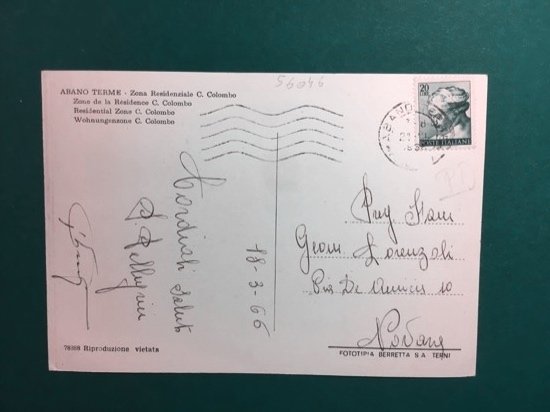 59046
ABANO TERME - Zona Residenziale C. Colombo
Zone de la Résidence C. Colombo
Residential Zone C. Colombo
Wohnungenzone C. Colombo
20
POSTE ITALIANE
ABANO
Cordiali saluti
18-3-66
Geom Lorenzoli
Via De Amicis 10
78388 Riproduzione vietata
FOTOTIPIA BERRETTA S A TERNI